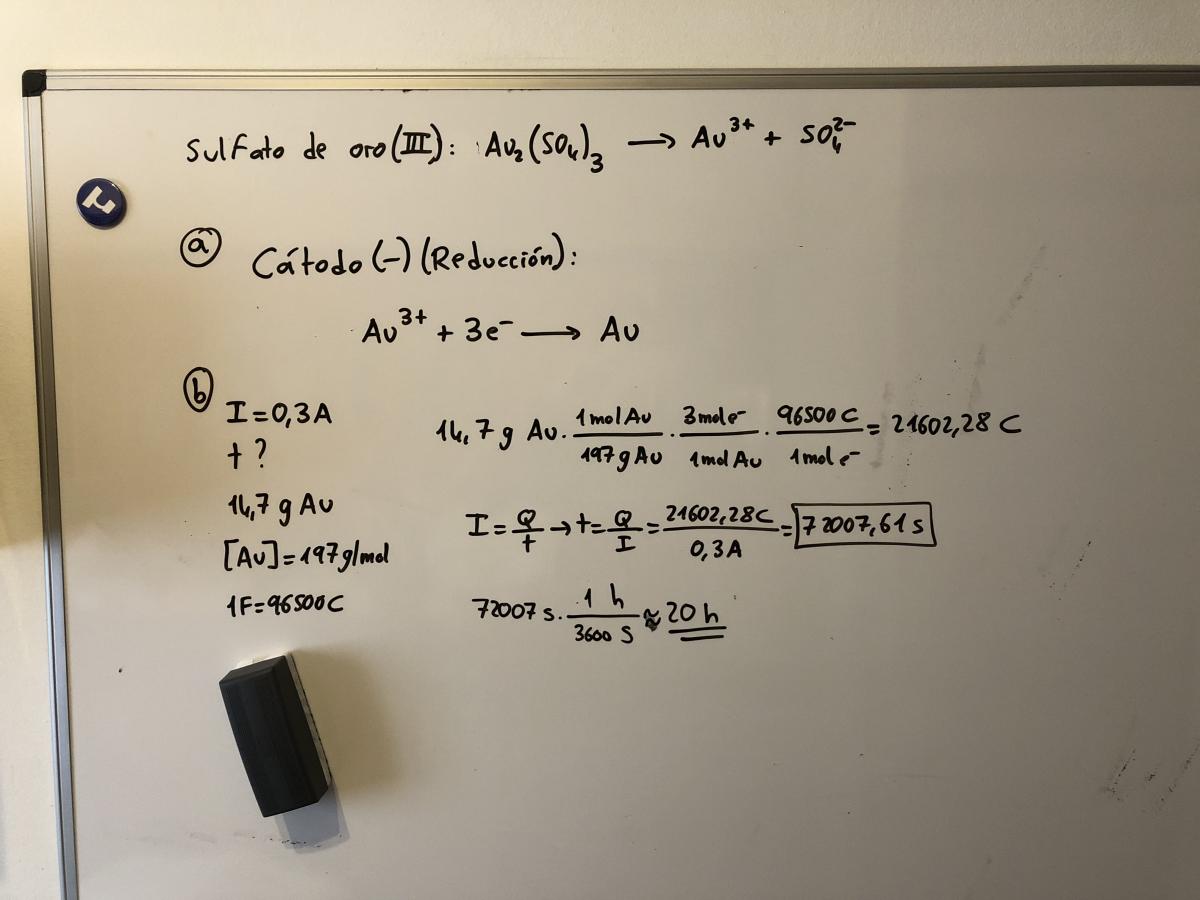 Sulfato de oro (III): Au₂(SO₄)₃ ⟶ Au³⁺ + SO₄²⁻
ⓐ Cátodo (-) (Reducción):
Au³⁺ + 3e⁻ ⟶ Au
ⓑ
I = 0,3 A
t ?
14,7 g Au
[Au] = 197 g/mol
1F = 96500 C
14,7 g Au · 1 mol Au / 197 g Au · 3 mol e⁻ / 1 mol Au · 96500 C / 1 mol e⁻ = 21602,28 C
I = Q / t → t = Q / I = 21602,28 C / 0,3 A = 72007,61 s
72007 s · 1 h / 3600 s ≈ 20 h